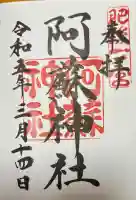 奉拝
肥後一の宮
阿蘇神社
阿蘇神社
令和五年三月十四日